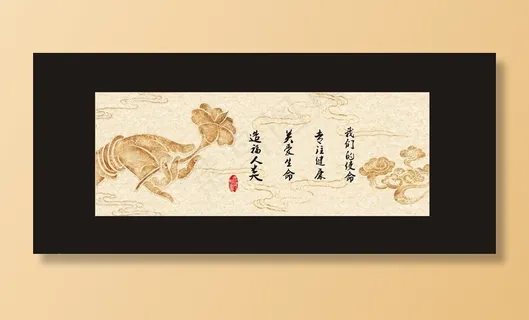 我们的使命
专注健康
关爱生命
造福人类